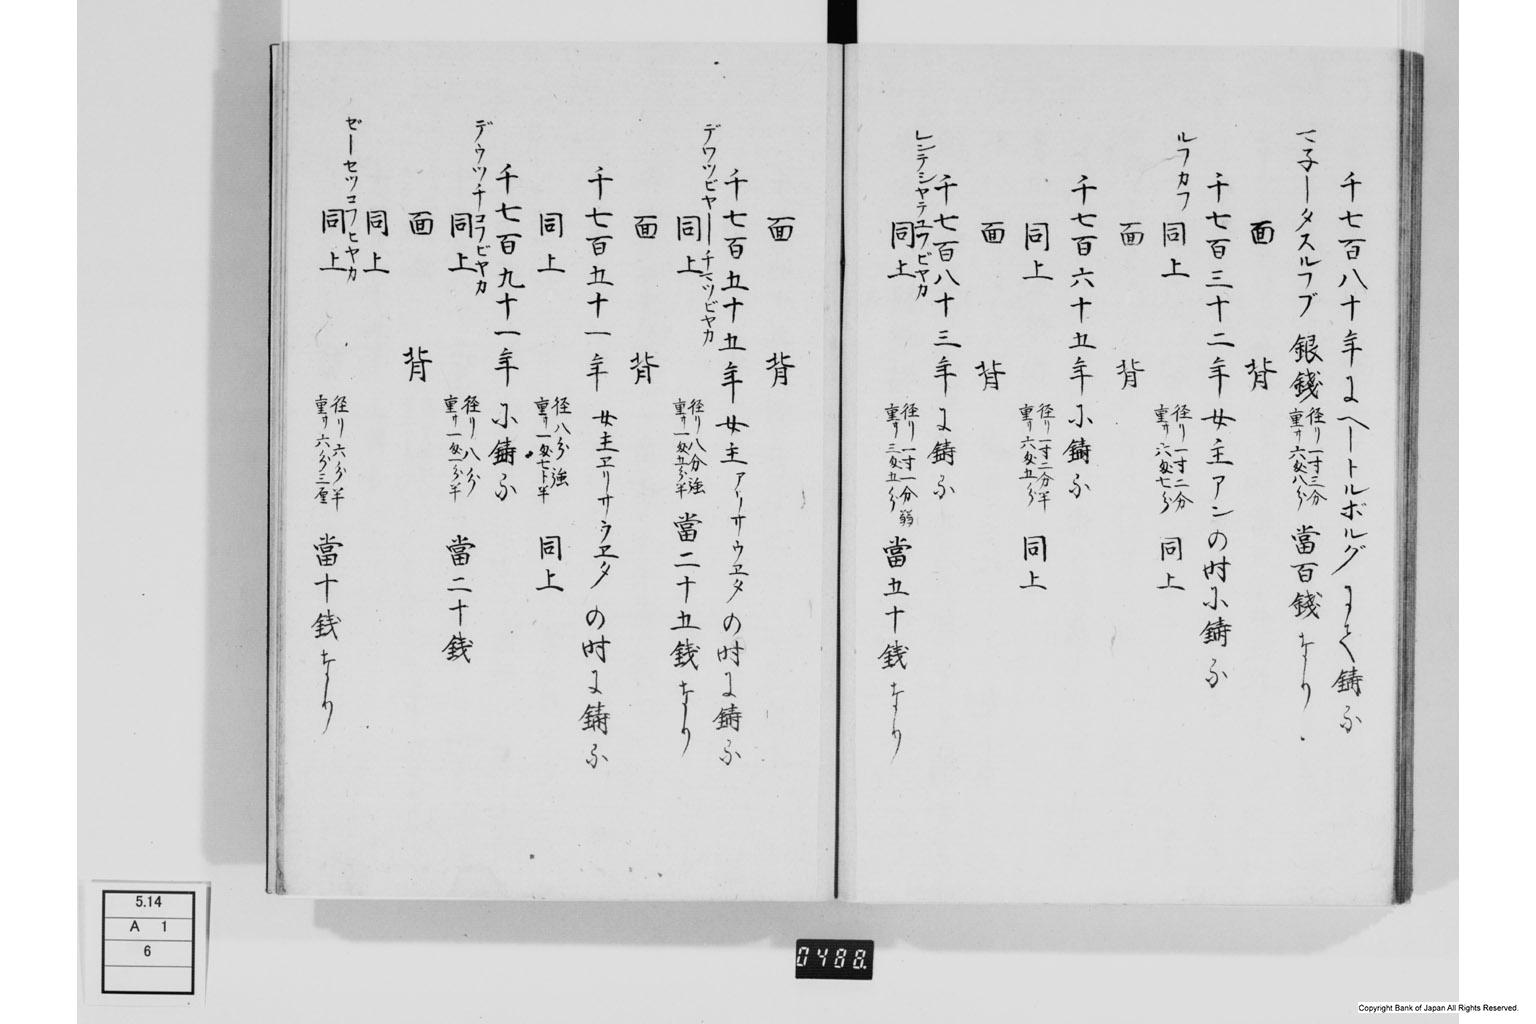 千七百八十年にヘートルボルグにて鋳る
マ子ータスルフブ 銀錢 径リ一寸三分 重サ六匁八分 當百錢なり
面 背
千七百三十二年女主アンの时に鋳る
ルフカフ
同上 径リ一寸二分 重サ六匁七分 同上
面 背
千七百六十五年に鋳る
同上 径リ一寸二分半 重サ六匁五分 同上
面 背
千七百八十三年に鋳る
レンテシヤテユフビヤカ
同上 径リ一寸一分弱 重サ三匁五分 當五十銭なり
面 背
千七百五十五年女主アリサウヱタの时に鋳る
デワツビヤー千マツビヤカ
同上 径リ八分強 重サ一匁五分半 當二十五銭なり
面 背
千七百五十一年 女主ヱリサウヱタの时に鋳る
同上 径八分強 重サ一匁七ト半 同上
千七百九十一年に鋳る
デウツチコフビヤカ
同上 径リ八分 重サ一匁一分半 當二十銭
面 背
同上
ゼーセツコフヒヤカ
同上 径リ六分半 重サ六分三厘 當十銭なり
5.14
A 1
6
0488.
Copyright Bank of Japan All Rights Reserved.